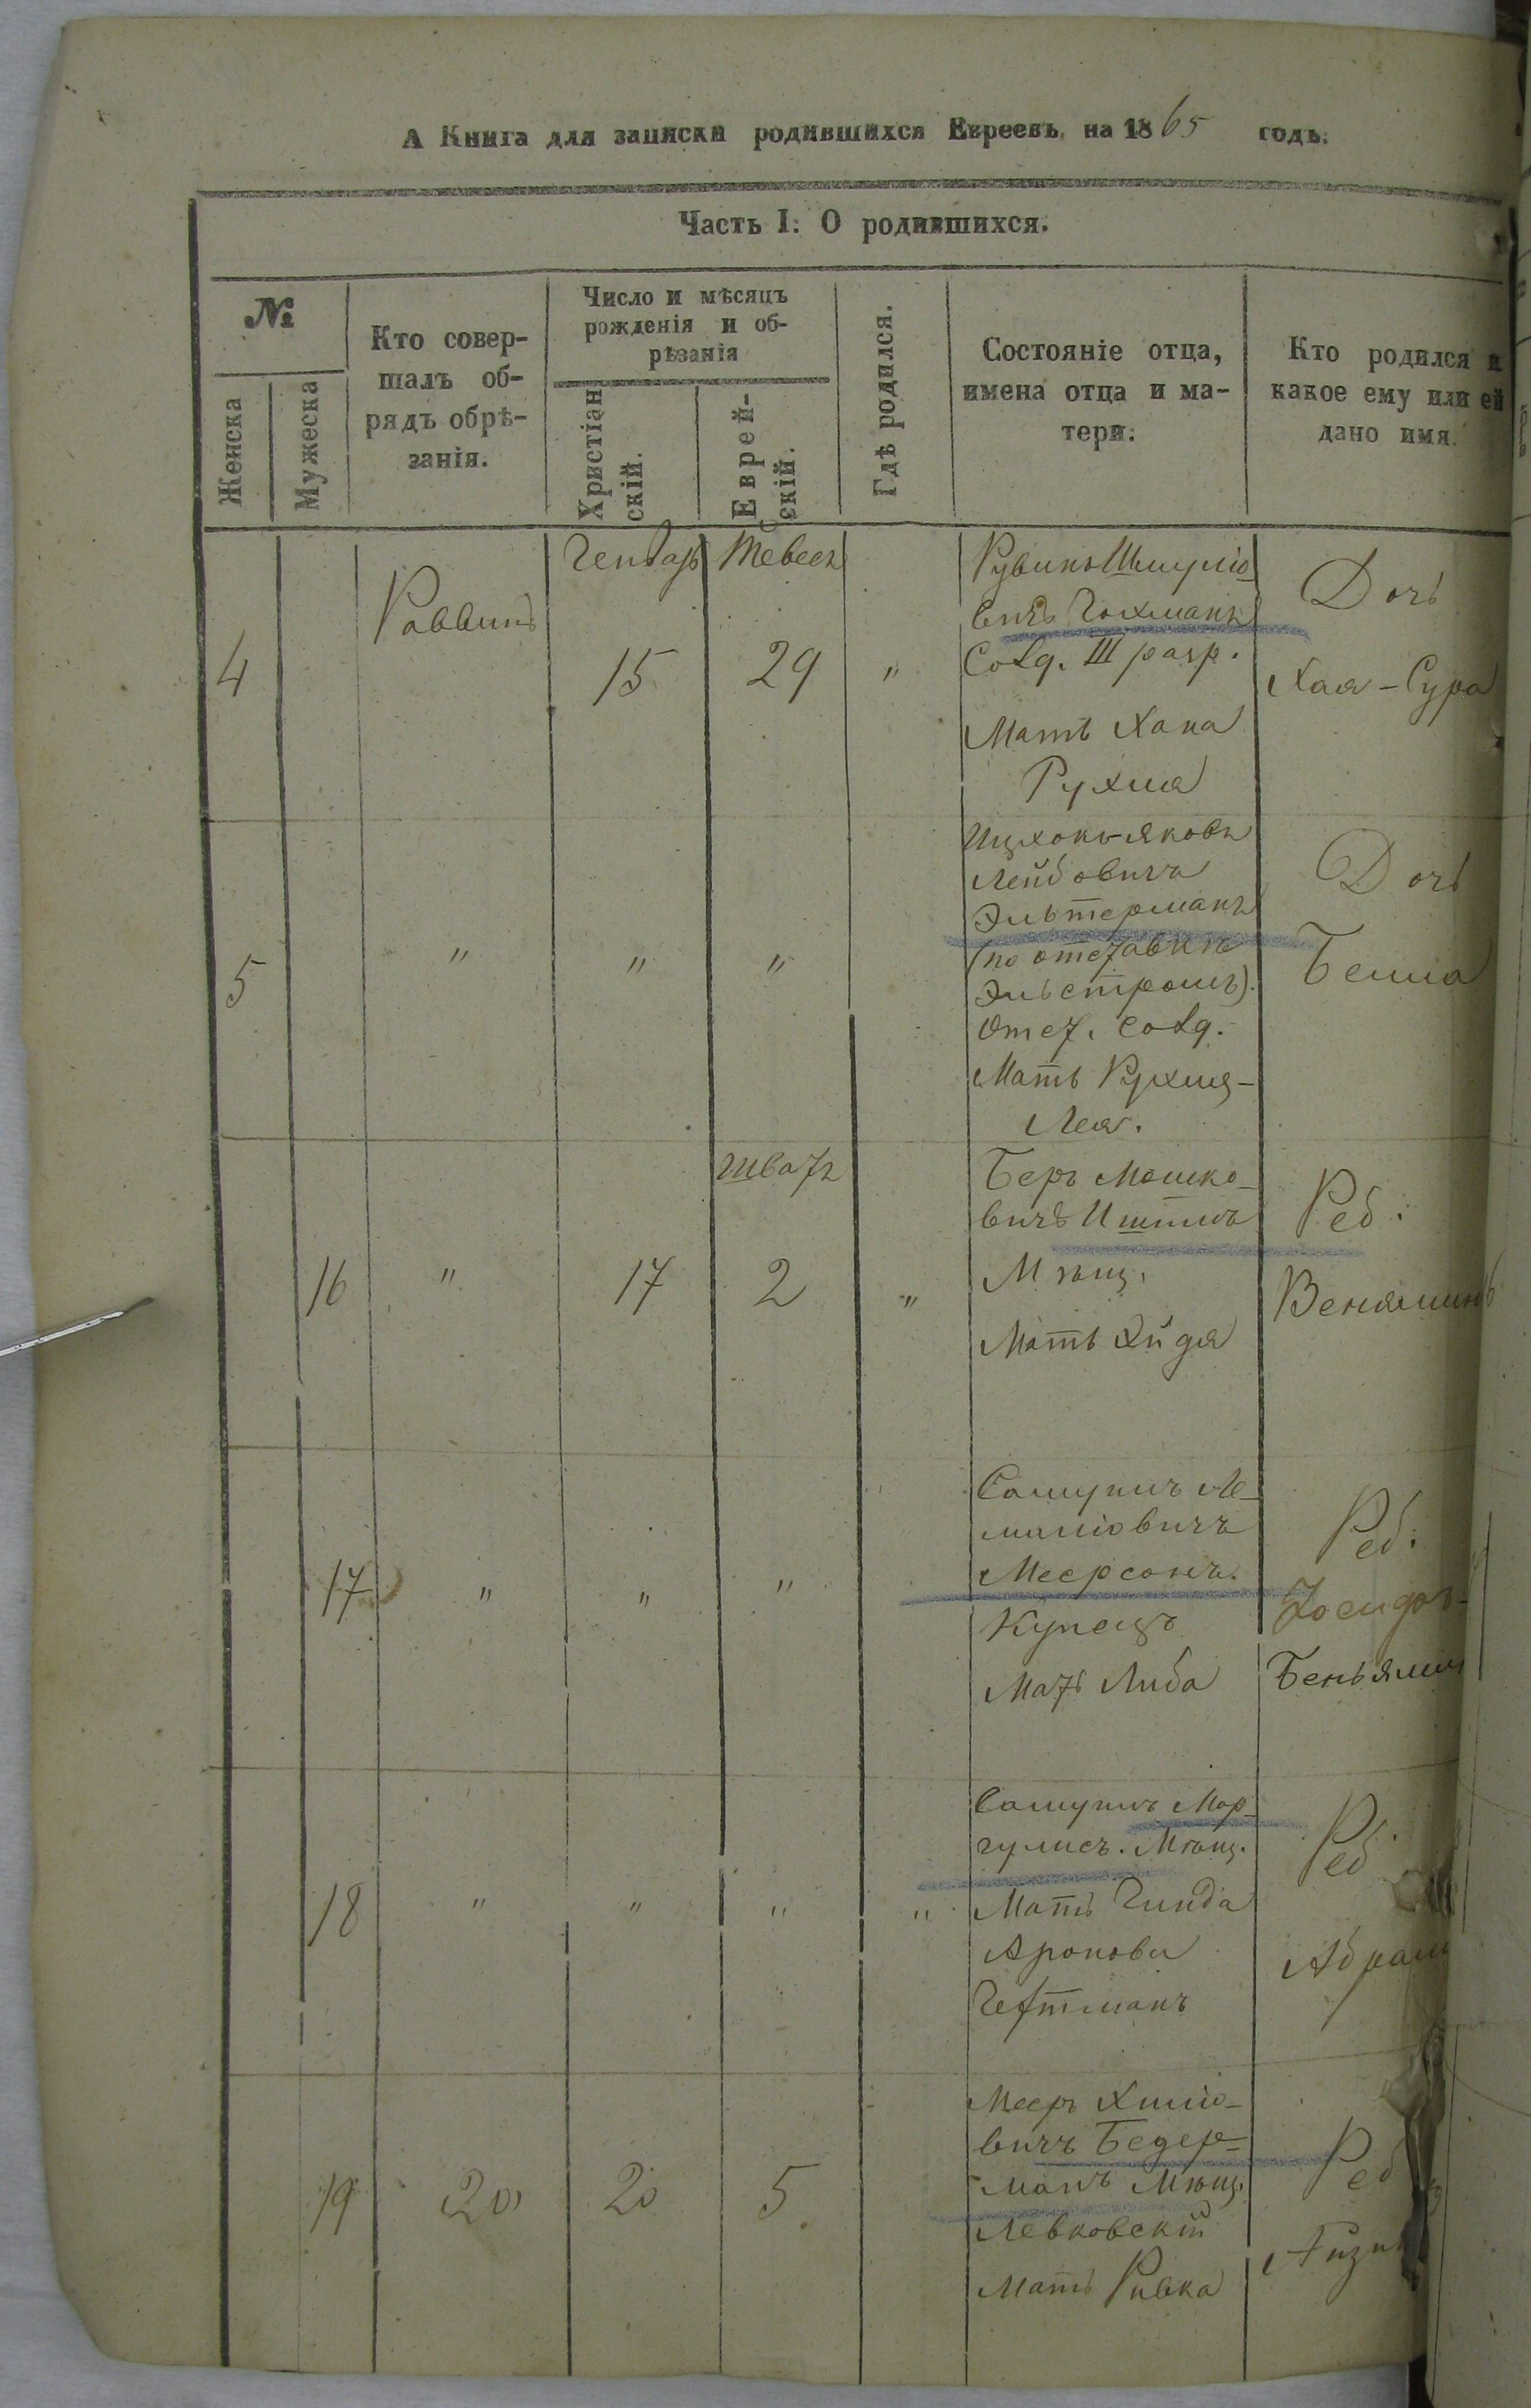 А Книга для записки родившихся Евреевъ на 1865 годъ.
Часть I: О родившихся.
№
Женска
Мужеска
Кто совер-
шалъ об-
рядъ обрѣ-
занія.
Число и мѣсяцъ
рожденія и об-
рѣзанія
Христіан
скій.
Еврей-
скій.
Гдѣ родился.
Состояніе отца,
имена отца и ма-
тери.
Кто родился и
какое ему или ей
дано имя.
4
Раввинъ
Генварь
15
Тевесъ
29
"
Рувинъ Шмуліо
вичъ Гохманъ
Солд. III разр.
Мать Хана
Рухма
Дочь
Хая-Сура
5
"
"
"
Ицхокъ-Яковъ
Лейбовичъ
Эльтерманъ
(по отставкѣ
Эльстромъ).
Отст. Солд.
Мать Рухля-
Лея.
Дочь
Бейла
16
"
17
Шватъ
2
"
Беръ Мошко-
вичъ
Мѣщ.
Мать
Реб.
Веняминъ
17
"
"
"
Самуилъ
Меерсонъ.
Купецъ
Мать Либа
Реб.
Беньямин
18
"
"
"
"
Самуилъ Мар-
гулисъ. Мѣщ.
Мать Гинда
Аронова
Гертманъ
Реб.
Абрам
19
20
20
5
Мееръ
вичъ Бедер-
манъ Мѣщ.
Левковскій
Мать Ривка
Реб
Айзи